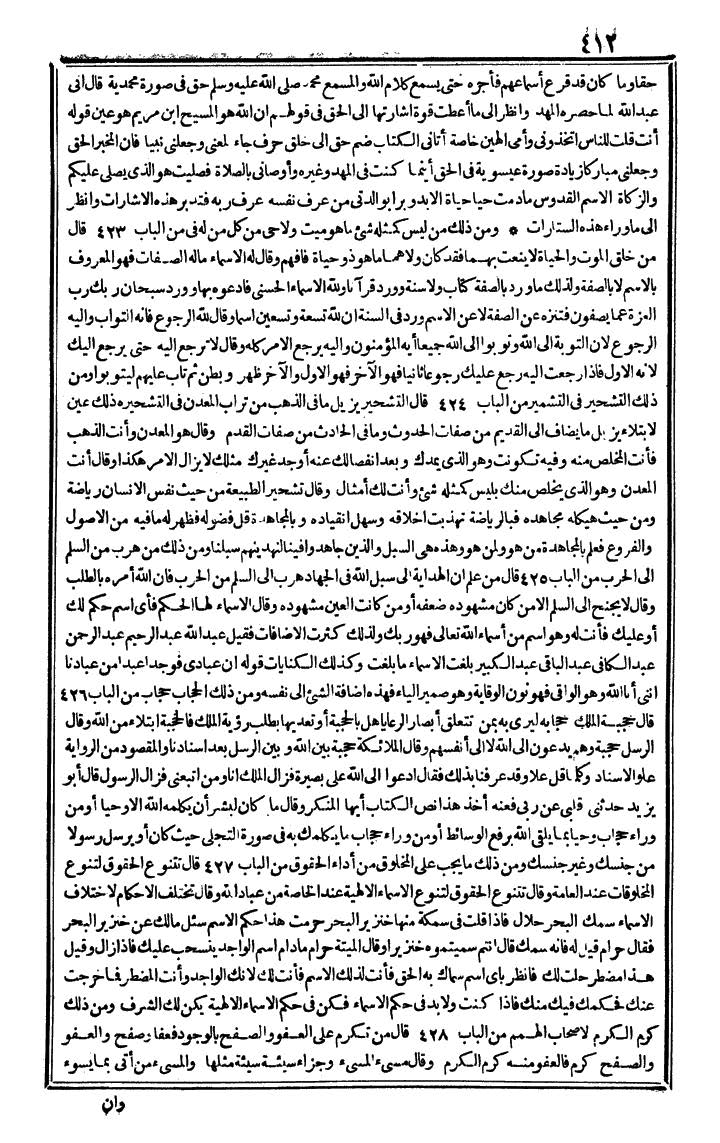 ٤١٢
حقا وما كان قد قرع أسماعهم فأجره حتى يسمع كلام الله والمسمع محمد صلى الله عليه وسلم حق فى صورة محمدية قال انى
عبد الله لما حصره المهد وانظر الى ما أعطت قوة اشارتها الى الحق فى قولهم ان الله هو المسيح ابن مريم هو عين قوله
أنت قلت للناس اتخذونى وأمى الهين خاصة أتانى الكتاب ضم حق الى خلق حرف جاء لمعنى وجعلنى نبيا فان المخبر الحق
وجعلنى مباركا زيادة صورة عيسوية فى الحق أينما كنت فى المهد وغيره وأوصانى بالصلاة فصليت هو الذى يصلى عليكم
والزكاة الاسم القدوس مادمت حيا حياة الابد وبرا بوالدتى من عرف نفسه عرف ربه فتدبر هذه الاشارات وانظر
الى ما وراء هذه الستارات * ومن ذلك من ليس كمثله شئ ما هو ميت ولا حى من كل من له فى من الباب ٤٢٣ قال
من خلق الموت والحياة لا ينعت بهما فقد كان ولا هما ما هو ذو حياة فافهم وقال له الاسماء ماله الصفات فهو المعروف
بالاسم لا بالصفة ولذلك ما ورد بالصفة كتاب ولا سنة وورد قرآنا ولله الاسماء الحسنى فادعوه بها وورد سبحان ربك رب
العزة عما يصفون فتنزه عن الصفة لا عن الاسم ورد فى السنة ان لله تسعة وتسعين اسما وقال لله الرجوع فانه التواب واليه
الرجوع لان التوبة الى الله وتوبوا الى الله جميعا أيه المؤمنون واليه يرجع الامر كله وقال لا ترجع اليه حتى يرجع اليك
لانه الاول فاذا رجعت اليه رجع عليك رجوعا ثانيا فهو الآخر فهو الاول والآخر ظهر وبطن ثم تاب عليهم ليتوبوا ومن
ذلك التشحير فى التشمير من الباب ٤٢٤ قال التشحير يزيل ما فى الذهب من تراب المعدن فى التشحيره ذلك عين
لا بتلاء يزيل ما يضاف الى القديم من صفات الحدوث وما فى الحادث من صفات القدم وقال هو المعدن وأنت الذهب
فأنت المخلص منه وفيه تكونت وهو الذى يمدك وبعد انفصالك عنه أوجد غيرك مثلك لا يزال الامر هكذا وقال أنت
المعدن وهو الذى يخلص منك بليس كمثله شئ وأنت لك أمثال وقال تشحير الطبيعة من حيث نفس الانسان رياضة
ومن حيث هيكله مجاهده فبالرياضة تهذبت اخلاقه وسهل انقياده وبالمجاهدة قل فضوله فظهر له ما فيه من الاصول
والفروع فعلم بالمجاهدة من هو ولمن هو وهذه هى السبل والذين جاهدوا فينا لنهدينهم سبلنا ومن ذلك من هرب من السلم
الى الحرب من الباب ٤٢٥ قال من علم ان الهداية الى سبل الله فى الجهاد هرب الى السلم من الحرب فان الله أمره بالطلب
وقال لا يجنح الى السلم الا من كان مشهوده ضعفه أو من كانت العين مشهوده وقال الاسماء لها الحكم فأى اسم حكم لك
أو عليك فأنت له وهو اسم من أسماء الله تعالى فهو ربك ولذلك كثرت الاضافات فقيل عبد الله عبد الرحيم عبد الرحمن
عبد الكافى عبد الباقى عبد الكبير بلغت الاسماء ما بلغت وكذلك الكنايات قوله ان عبادى فوجدا عبدا من عبادنا
اننى أنا الله وهو الواقى فهو نون الوقاية وهو ضمير الياء فهذه اضافة الشئ الى نفسه ومن ذلك الحجاب حجاب من الباب ٤٢٦
قال حجبة الملك حجابه ليرى به بمن تتعلق أبصار الرعايا هل بالحجبة أو تعديها بطلب رؤية الملك فالحجبة ابتلاء من الله وقال
الرسل حجبة وهم يدعون الى الله لا الى أنفسهم وقال الملائكة حجبة بين الله وبين الرسل بعد اسنادنا والمقصود من الرواية
علو الاسناد وكلما قل علا وقد عرفنا بذلك فقال ادعوا الى الله على بصيرة فزال الملك انا ومن اتبعنى فزال الرسول قال أبو
يزيد حدثنى قلبى عن ربى فعنه أخذ هذا نص الكتاب أيها المنكر وقال ما كان لبشر أن يكلمه الله الا وحيا أو من
وراء حجاب وحيا بما يلقى الله برفع الوسائط أو من وراء حجاب ما يكلمك به فى صورة التجلى حيث كان أو يرسل رسولا
من جنسك وغير جنسك ومن ذلك ما يجب على المخلوق من أداء الحقوق من الباب ٤٢٧ قال تتنوع الحقوق لتنوع
المخلوقات عند العامة وقال تتنوع الحقوق لتنوع الاسماء الالهية عند الخاصة من عباد الله وقال تختلف الاحكام لاختلاف
الاسماء سمك البحر حلال فاذا قلت فى سمكة منها خنزير البحر حرمت هذا حكم الاسم سئل مالك عن خنزير البحر
فقال حرام قيل له فانه سمك قال أنتم سميتموه خنزيرا وقال الميتة حرام مادام اسم الواجد ينسحب عليك فاذا زال وقيل
هذا مضطر حلت لك فانظر باى اسم سماك به الحق فأنت لذلك الاسم فأنت لك لانك الواجد وأنت المضطر فما خرجت
عنك فحكمك فيك منك فاذا كنت ولا بد فى حكم الاسماء فكن فى حكم الاسماء الالهية يكن لك الشرف ومن ذلك
كرم الكرم لاصحاب الهمم من الباب ٤٢٨ قال من تكرم على العفو والصفح بالوجود فعفا وصفح والعفو
والصفح كرم فالعفو منه كرم الكرم وقال مسىء المسىء وجزاء سيئة سيئة مثلها والمسىء من أتى بما يسوء
وان